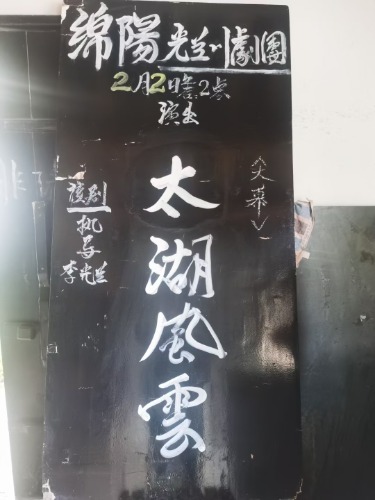 绵陽光兰川劇團
2月2日2点
演出
太湖風雲
〈大幕〉
该剧
执导
李光兰